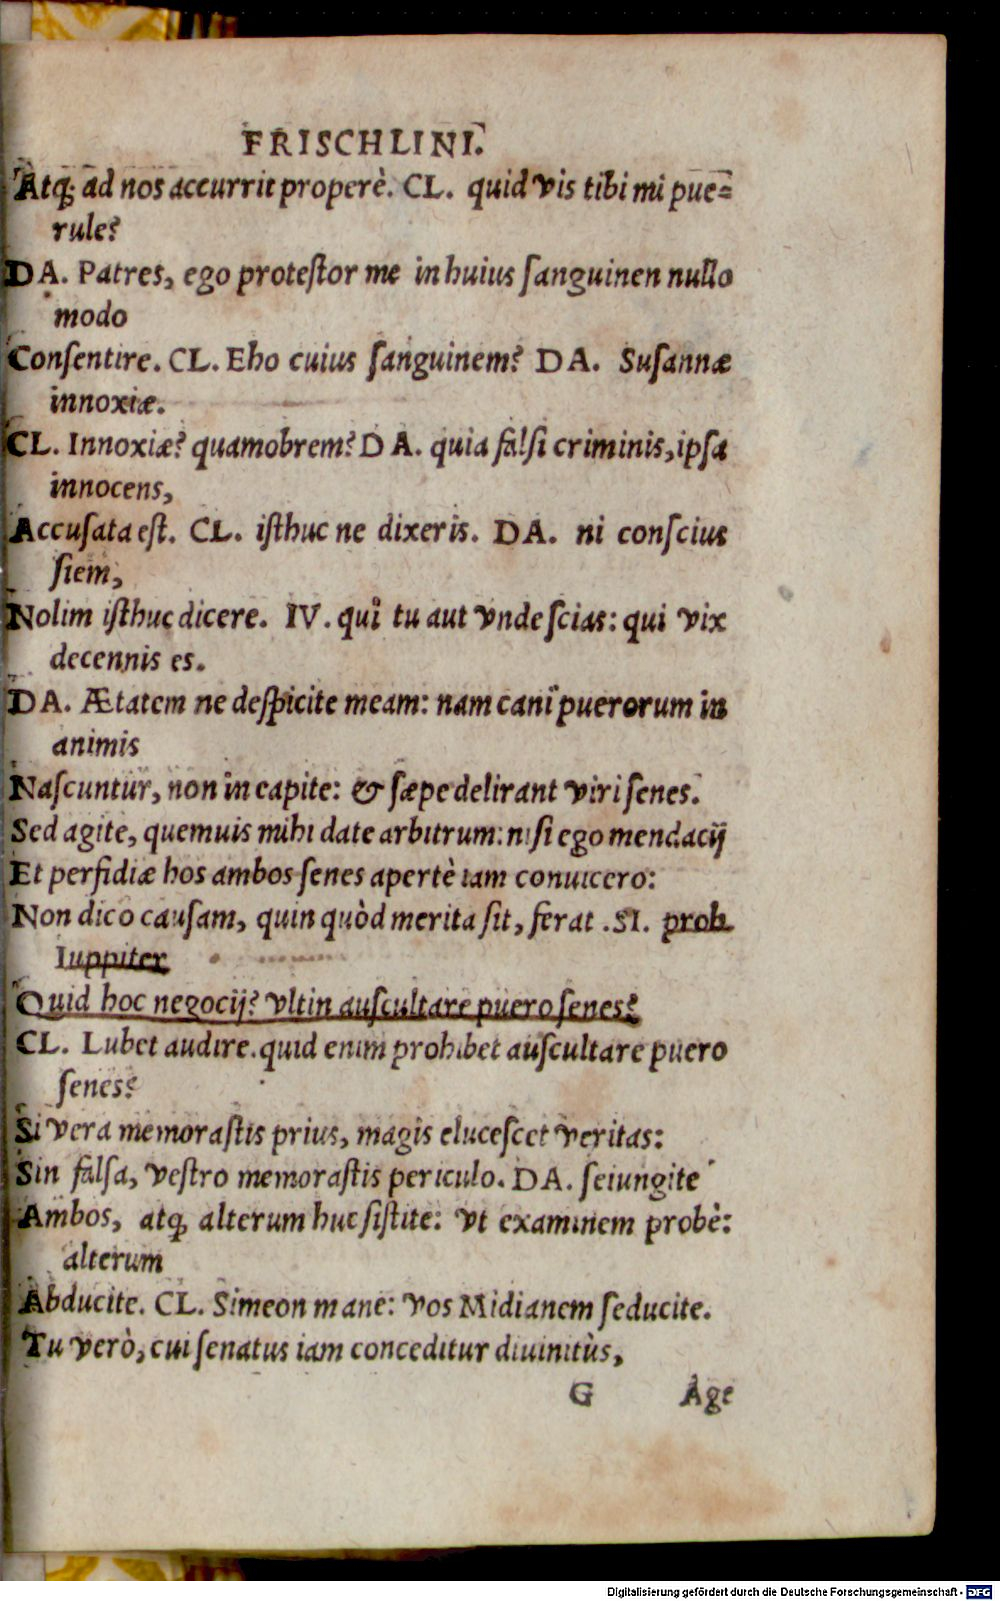 FRISCHLINI.
Atq; ad nos accurrit properè. CL. quid vis tibi mi pue-
rule?
DA. Patres, ego protestor me in huius sanguinen nullo
modo
Consentire. CL. Eho cuius sanguinem? DA. Susannæ
innoxiæ.
CL. Innoxiæ? quamobrem? DA. quia falsi criminis, ipsa
innocens,
Accusata est. CL. isthuc ne dixeris. DA. ni conscius
siem,
Nolim isthuc dicere. IV. quî tu aut vnde scias: qui vix
decennis es.
DA. Ætatem ne despicite meam: nam cani puerorum in
animis
Nascuntur, non in capite: & sæpe delirant viri senes.
Sed agite, quemuis mihi date arbitrum: nisi ego mendacij
Et perfidiæ hos ambos senes apertè iam conuicero:
Non dico causam, quin quòd merita sit, ferat. SI. proh
Iuppiter
Quid hoc negocij? vltin auscultare puero senes?
CL. Lubet audire. quid enim prohibet auscultare puero
senes?
Si vera memorastis prius, magis elucescet veritas:
Sin falsa, vestro memorastis periculo. DA. seiungite
Ambos, atq; alterum huc sistite: vt examinem probè:
alterum
Abducite. CL. Simeon mane: vos Midianem seducite.
Tu verò, cui senatus iam conceditur diuinitùs,
G Age
Digitalisierung gefördert durch die Deutsche Forschungsgemeinschaft - DFG